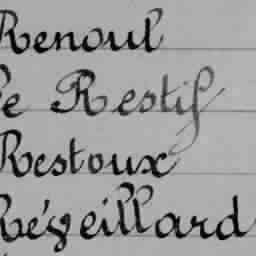 Renoul
Le Restif
Restoux
Réveillard